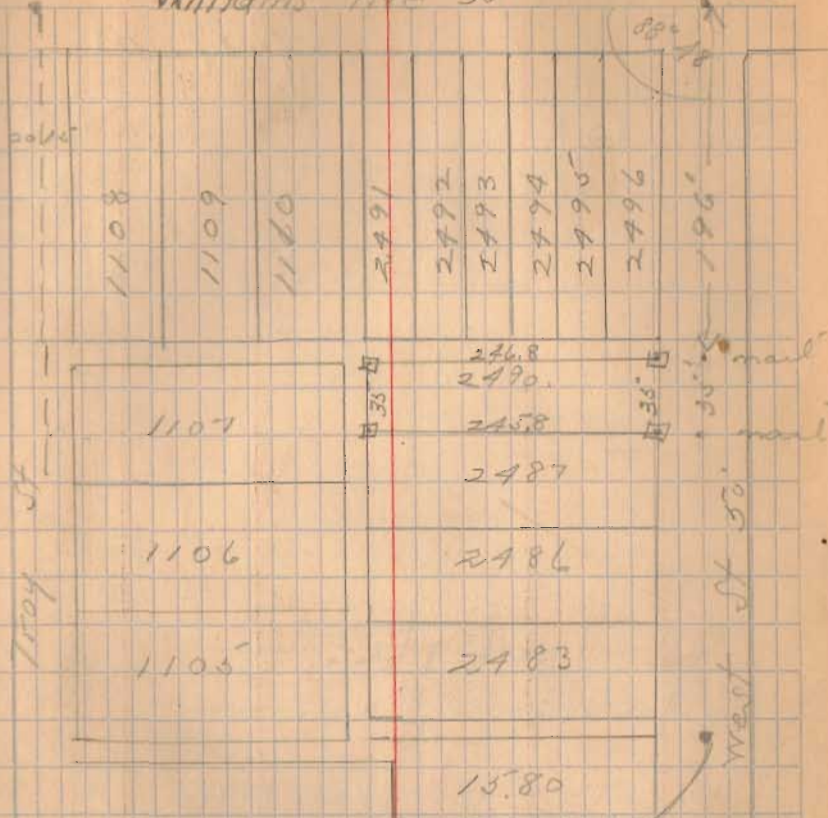 88° 48
1108
1109
1110
2491
2492
2493
2494
2495
2496
196'
246.8
2490.
35'
35'
35'
nail
245.8
nail
1107
2487
1106
2486
1105
2483
Troy St
West St 50'
1580